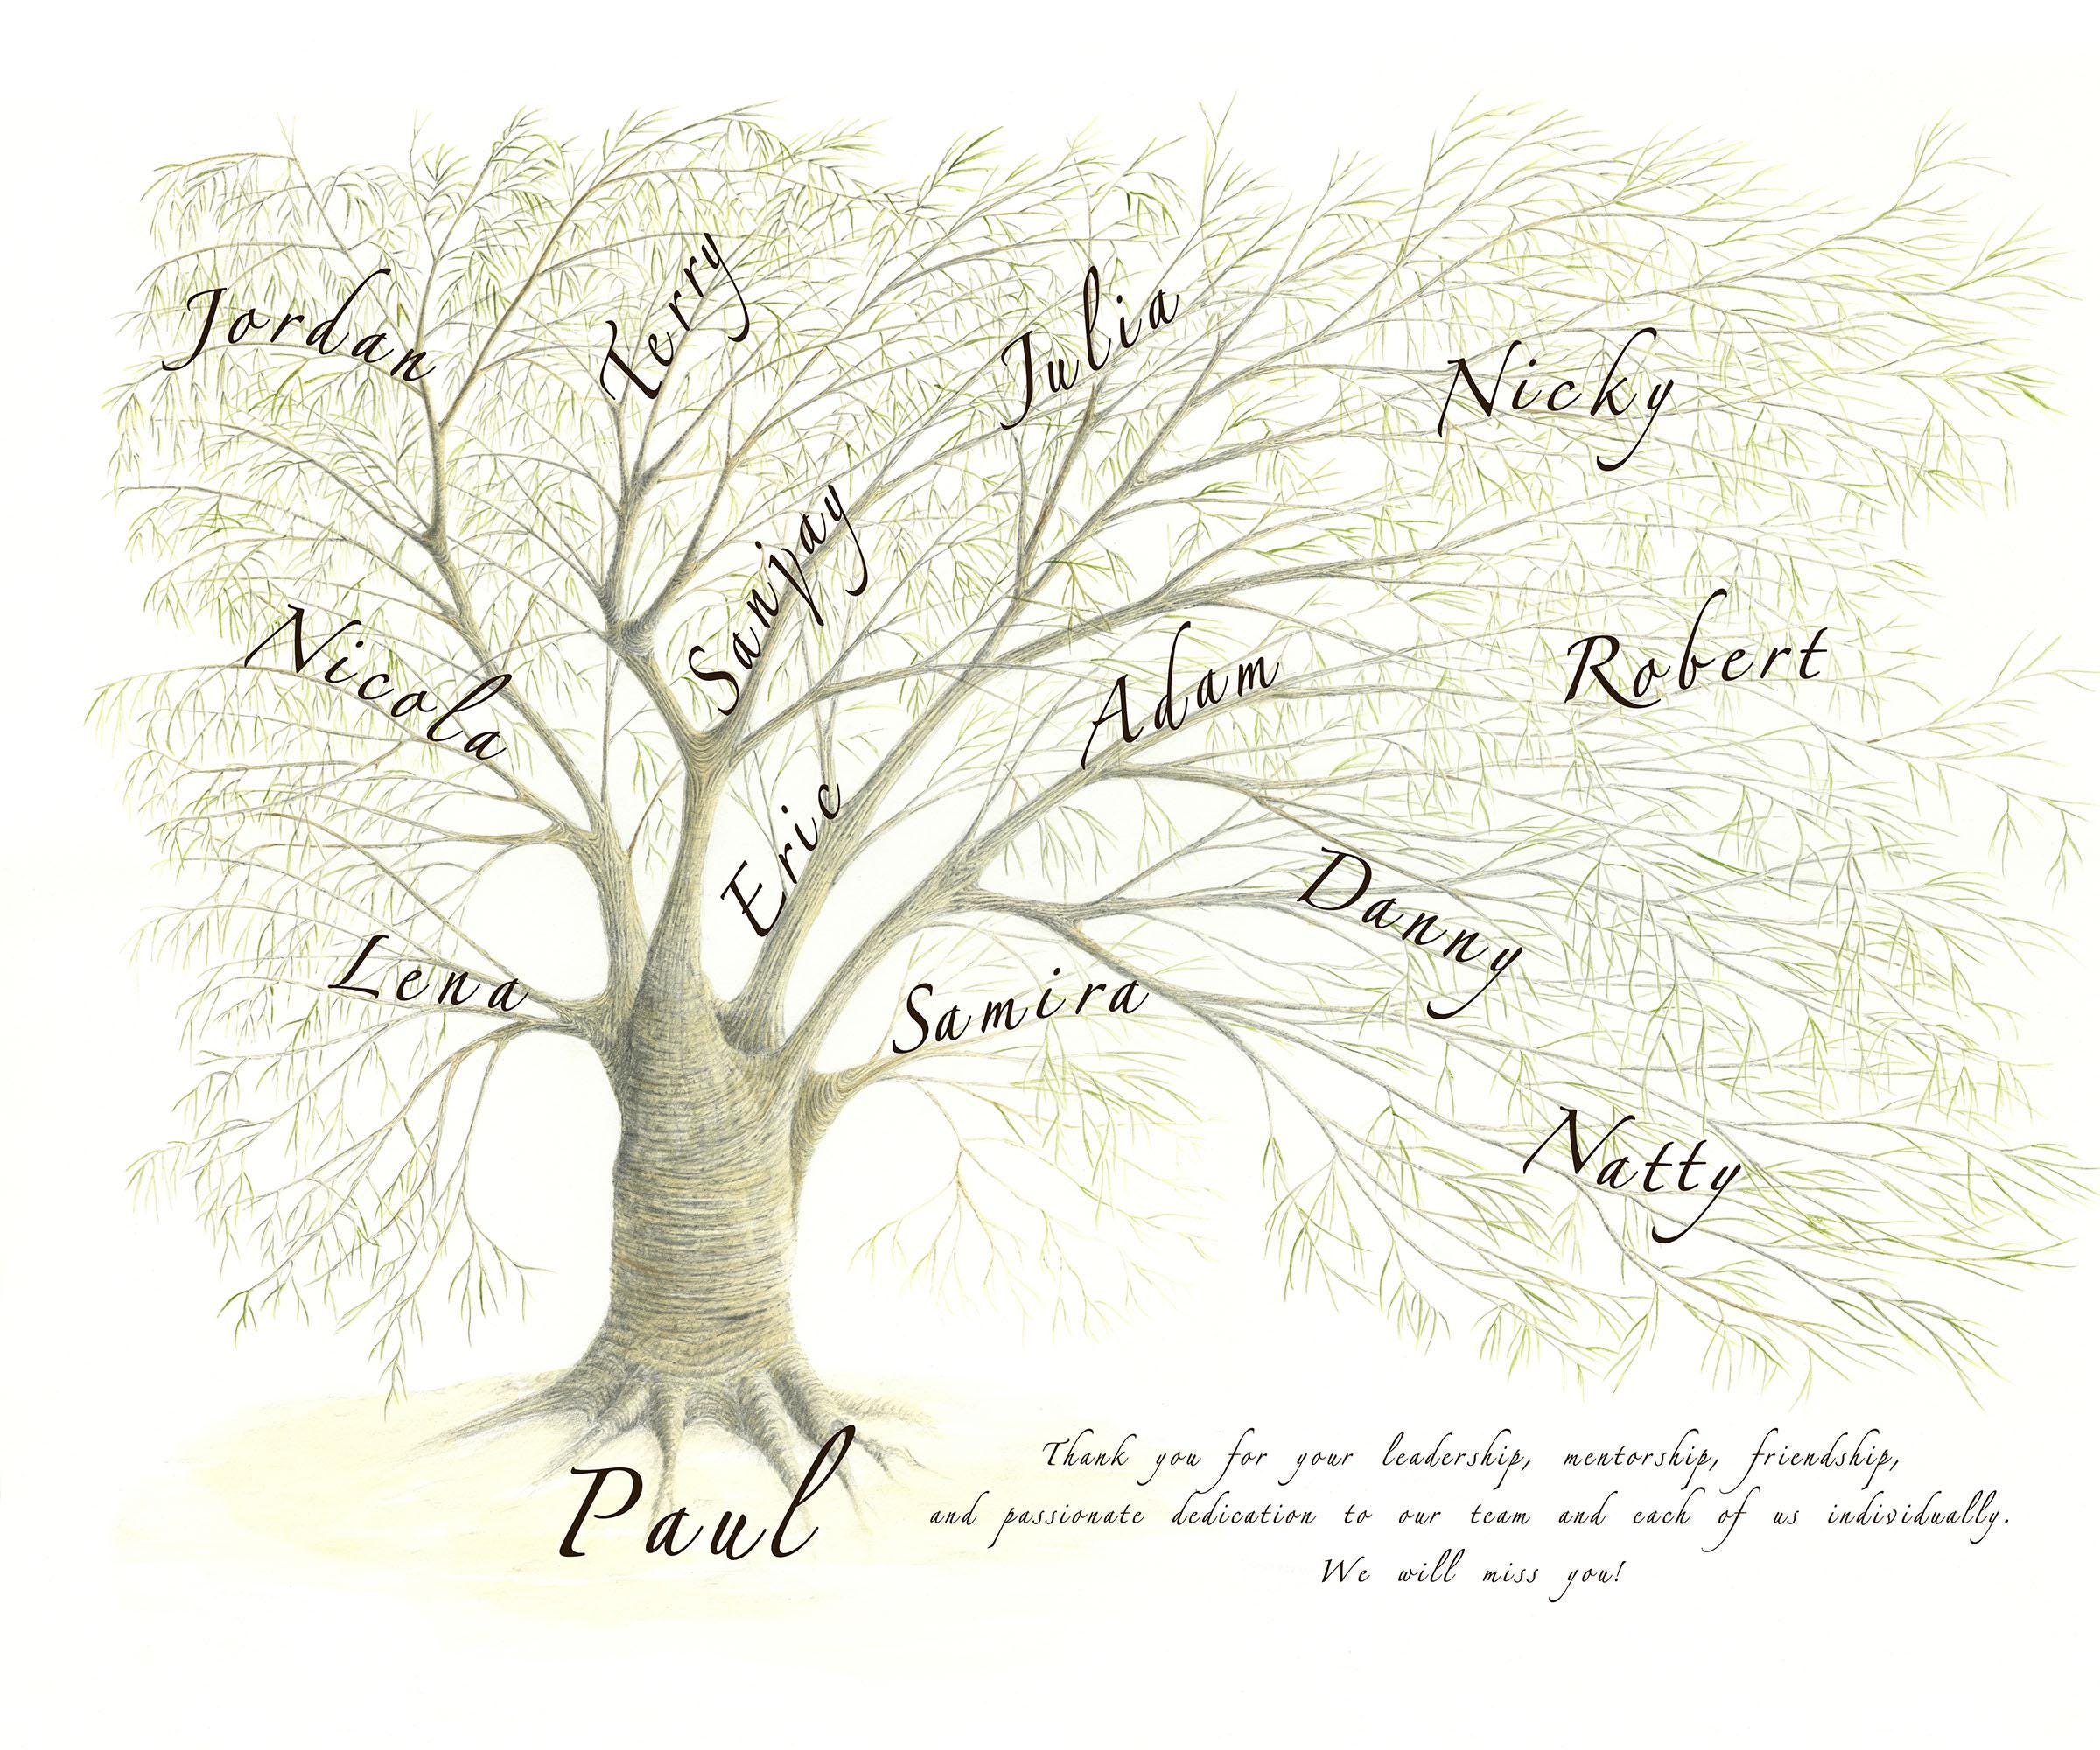 Jordan
Terry
Julia
Nicky
Sanjay
Nicola
Adam
Robert
Eric
Danny
Lena
Samira
Natty
Paul
Thank you for your leadership, mentorship, friendship,
and passionate dedication to our team and each of us individually.
We will miss you!